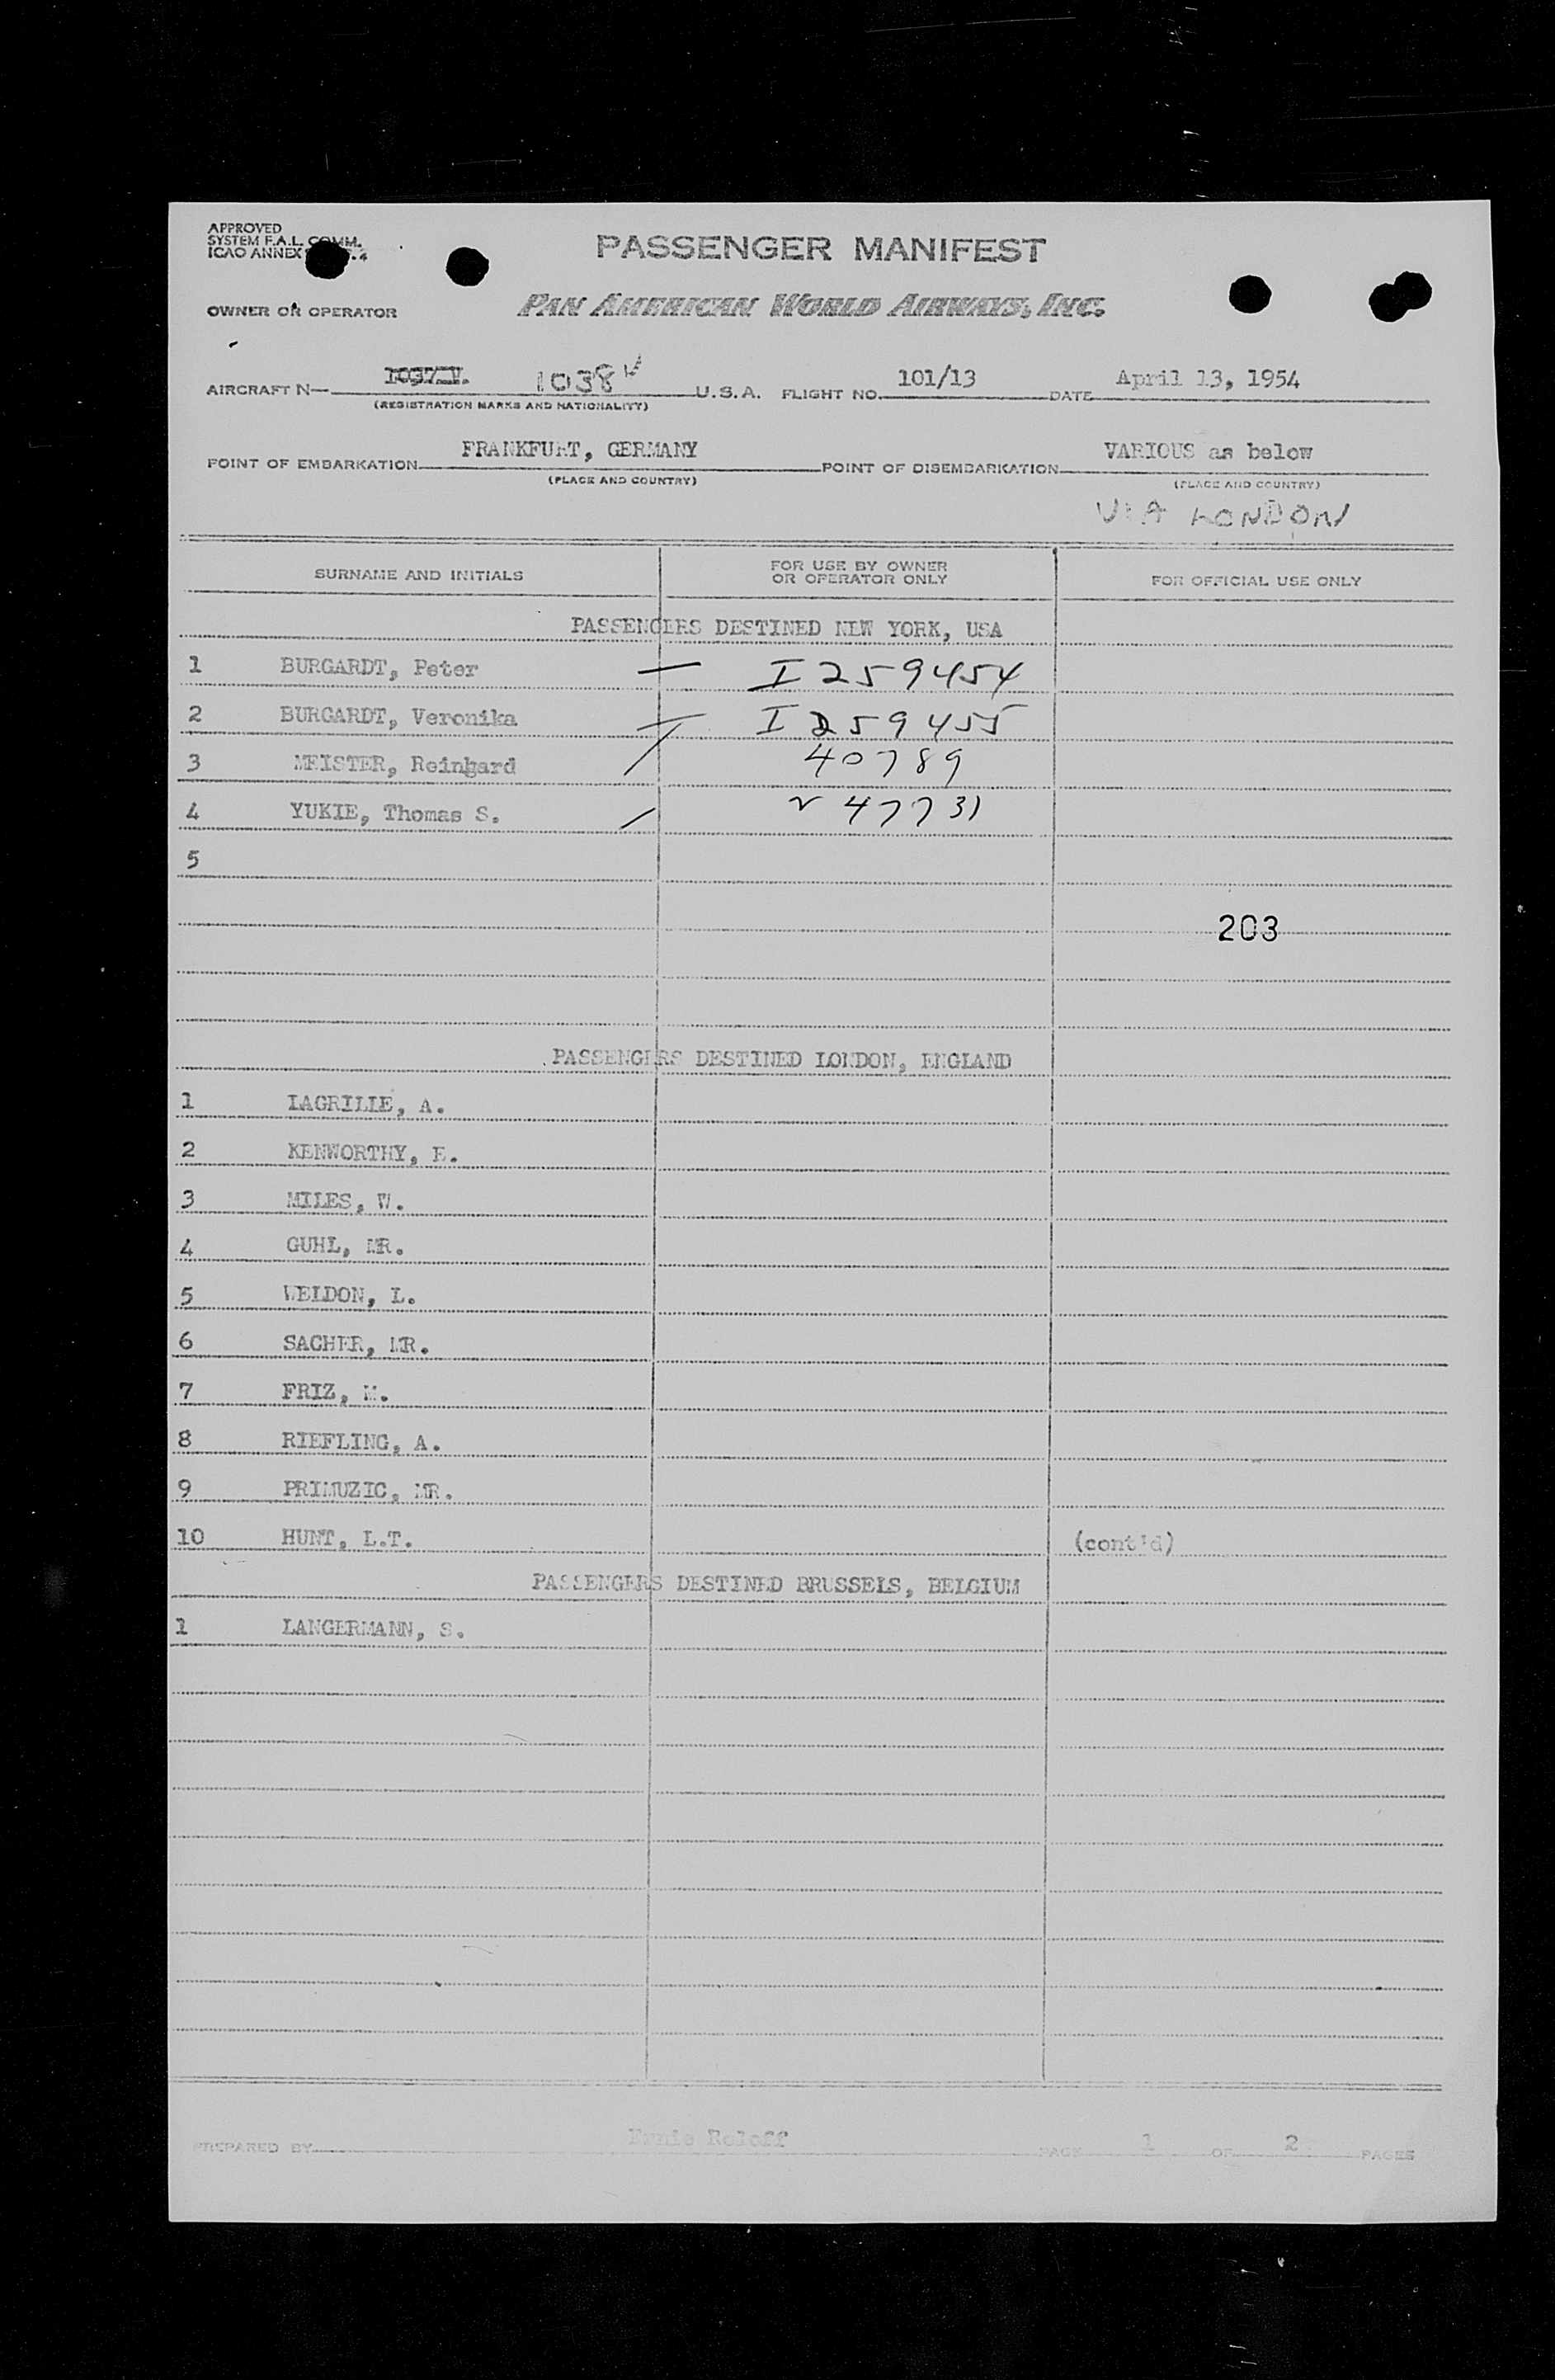 APPROVED
SYSTEM F.A.L. COMM.
ICAO ANNEX
PASSENGER MANIFEST
OWNER OR OPERATOR PAN AMERICAN WORLD AIRWAYS, INC.
AIRCRAFT N— 1037 V. 1038 V U.S.A. FLIGHT NO. 101/13 DATE April 13, 1954
(REGISTRATION MARKS AND NATIONALITY)
POINT OF EMBARKATION FRANKFURT, GERMANY POINT OF DISEMBARKATION VARIOUS as below
(PLACE AND COUNTRY) (PLACE AND COUNTRY)
VIA LONDON
SURNAME AND INITIALS FOR USE BY OWNER OR OPERATOR ONLY FOR OFFICIAL USE ONLY
PASSENGERS DESTINED NEW YORK, USA
1 BURGARDT, Peter — I 259454
2 BURGARDT, Veronika I 259455
3 MEISTER, Reinhard / 40789
4 YUKIE, Thomas S. / v 47731
5
203
PASSENGERS DESTINED LONDON, ENGLAND
1 LAGRILLE, A.
2 KENWORTHY, E.
3 MILES, W.
4 GUHL, MR.
5 WELDON, L.
6 SACHER, MR.
7 FRIZ, M.
8 RIEFLING, A.
9 PRIMUZIC, MR.
10 HUNT, L.T. (cont'd)
PASSENGERS DESTINED BRUSSELS, BELGIUM
1 LANGERMANN, S.
PREPARED BY Ernie Roloff PAGE 1 OF 2 PAGES